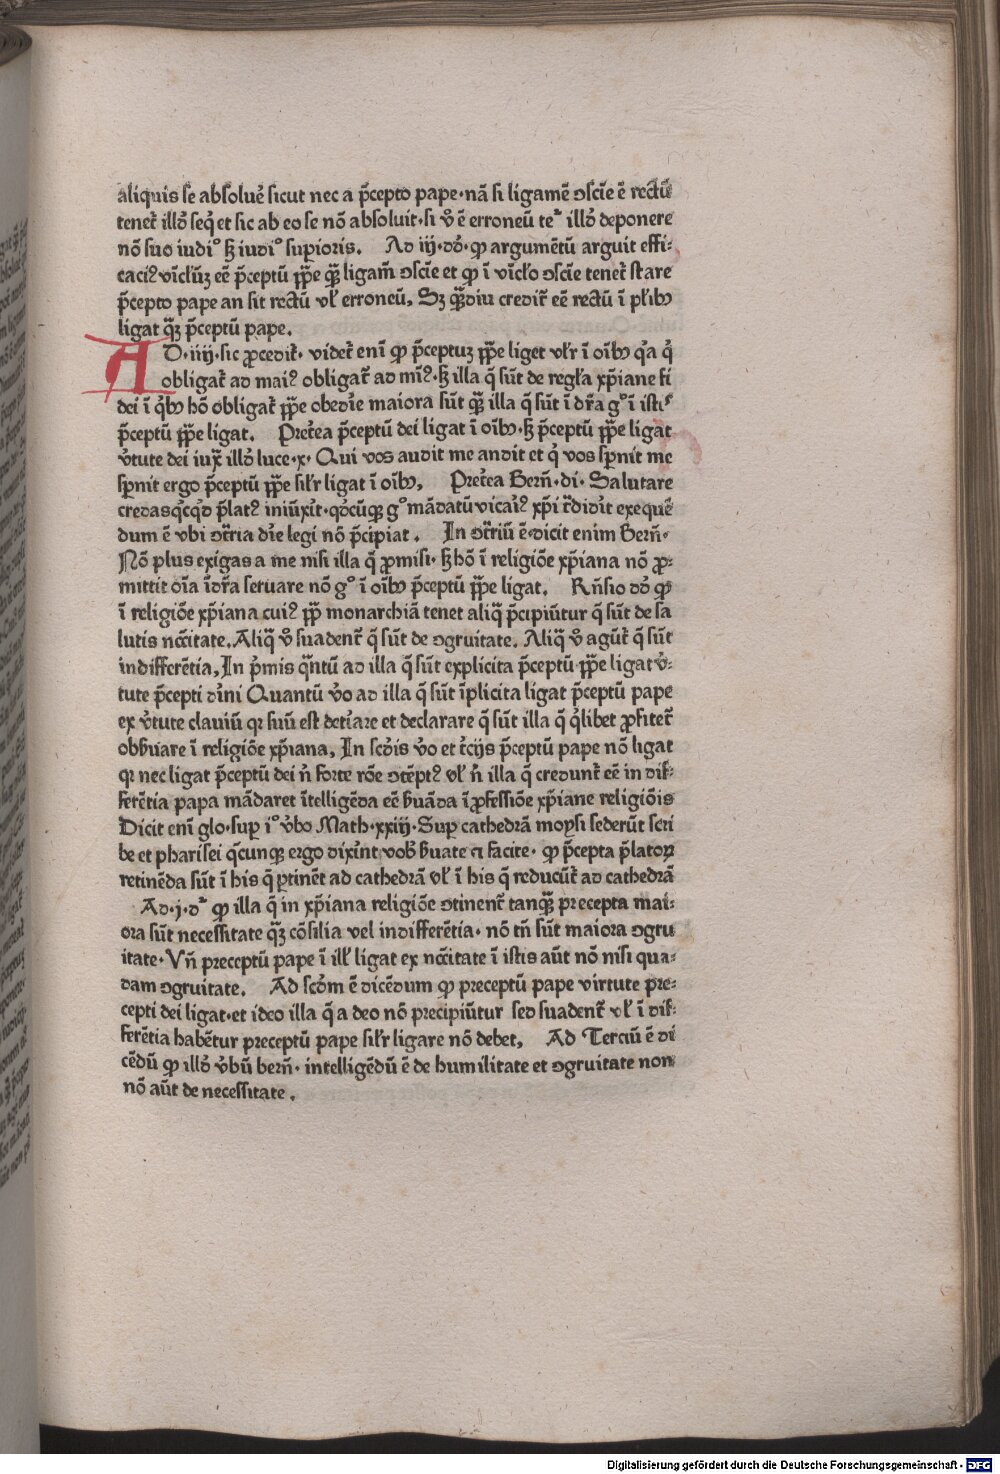 aliquis se absolueꝰ sicut nec a p̄cepto pape·nā si ligamē ↄsciē ē rectū
tenet᷑ illo᷑ seq᷑ et sic ab eo se nō absoluit·si v᷑ ē erroneū te᷑ illo᷑ deponere
nō suo iudi° sꝫ iudi° supioris. Ad iij·do᷑·qꝫ argumētū arguit effi⸗
ꝑcepto pape an sit rectū vl᷑ erroneū, Sꝫ qꝫdiu credit᷑ eē rectū ī pl᷑ibꝫ
ligat qꝫ p̄ceptū pape.
AD·iiij·sic ꝓcedit᷑· videt᷑ eni᷑ qꝫ p̄ceptuꝫ ꝓpe liget vl᷑r ī oi᷑bꝫ q᷑a q᷑
obligat᷑ ad maiꝰ obligat᷑ ad mi᷑ꝰ·sꝫ illa q̄ su᷑t de regl᷑a xp̄iane fi
dei ī q᷑bꝫ hō obligat᷑ ꝓpe obedi᷑e maiora su᷑t qꝫ illa q̄ su᷑t ī dr̄a g° ī isti᷑
p̄ceptū ꝓpe ligat. Pret᷑ea p̄ceptū dei ligat ī oi᷑bꝫ·sꝫ p̄ceptū ꝓpe ligat
v᷑tute dei iux᷑ illo᷑ luce·x·Qui vos audit me audit et q᷑ vos sp̄nit me
sp̄nit ergo p̄ceptū ꝓpe sil᷑r ligat ī oi᷑bꝫ, Pret᷑ea Bern̄·di·Salutare
dum ē vbi ↄtr̄ia di᷑e legi nō p̄cipiat. In ↄtr̄iū ē·dicit enim Bern̄·
Nō plus exigas a me nisi illa q̄ ꝓmisi·sꝫ hō ī religiōe xp̄iana nō ꝓ⸗
mittit oi᷑a īdr̄a seruare nō g° ī oi᷑bꝫ p̄ceptū ꝓpe ligat. Rn̄sio do᷑ qꝫ
ī religiōe xp̄iana cuiꝰ ꝓp monarchiā tenet aliq̄ p̄cipiūtur q̄ su᷑t de sa
lutis nc̄citate. Aliq̄ v᷑ suadent᷑ q̄ su᷑t de ↄgruitate. Aliq̄ v᷑ agu᷑t᷑ q̄ su᷑t
indifferētia, In p᷑mis qꝫntū ad illa q̄ su᷑t explicita p̄ceptū ꝓpe ligat v᷑⸗
tute p̄cepti di᷑ni Quantū v᷑o ad illa q̄ su᷑t īplicita ligat p̄ceptū pape
ex v᷑tute clauiū qꝛ suū est det᷑iare et declarare q̄ su᷑t illa q̄ q᷑libet ꝓfitet᷑
obẜuare ī religiōe xp̄iana, In sco᷑is v᷑o et t᷑cijs p̄ceptū pape nō ligat
qꝛ nec ligat p̄ceptū dei n᷑ forte rōe ↄtēptꝰ vl᷑ n᷑ illa q̄ credunt᷑ eē in dif⸗
ferētia papa mādaret ītelligēda eē ẜuāda ī ꝓfessiōe xp̄iane religiōis
Dicit eni᷑ glo·sup i° v᷑bo Math·xxiij·Sup cathedrā moysi sederūt scri
be et pharisei q̄cunqꝫ ergo dixi᷑nt vob᷑ ẜuate ⁊ facite·qꝫ p̄cepta p̄latoꝝ
retinēda su᷑t ī his q̄ ꝑtinēt ad cathedrā vl᷑ ī his q̄ reducu᷑t᷑ ad cathedrā
Ad·j·d᷑ qꝫ illa q̄ in xp̄iana religiōe ↄtinent᷑ tanqꝫ precepta mai⸗
ora su᷑t necessitate qꝫ cōsilia vel indifferētia·nō tn̄ su᷑t maiora ↄgru
itate·Vn̄ preceptū pape ī ill᷑ ligat ex nc̄citate ī istis au᷑t nō nisi qua⸗
dam ↄgruitate. Ad sco᷑m ē dicēdum qꝫ preceptū pape virtute pre⸗
cepti dei ligat·et ideo illa q̄ a deo nō precipiūtur sed suadent᷑ vl᷑ ī dif⸗
ferētia habētur preceptū pape sil᷑r ligare nō debet, Ad Terciū ē di
cēdū qꝫ illo᷑ v᷑bū bern̄·intelligēdū ē de humilitate et ↄgruitate non
nō au᷑t de necessitate.
Digitalisierung gefördert durch die Deutsche Forschungsgemeinschaft - DFG